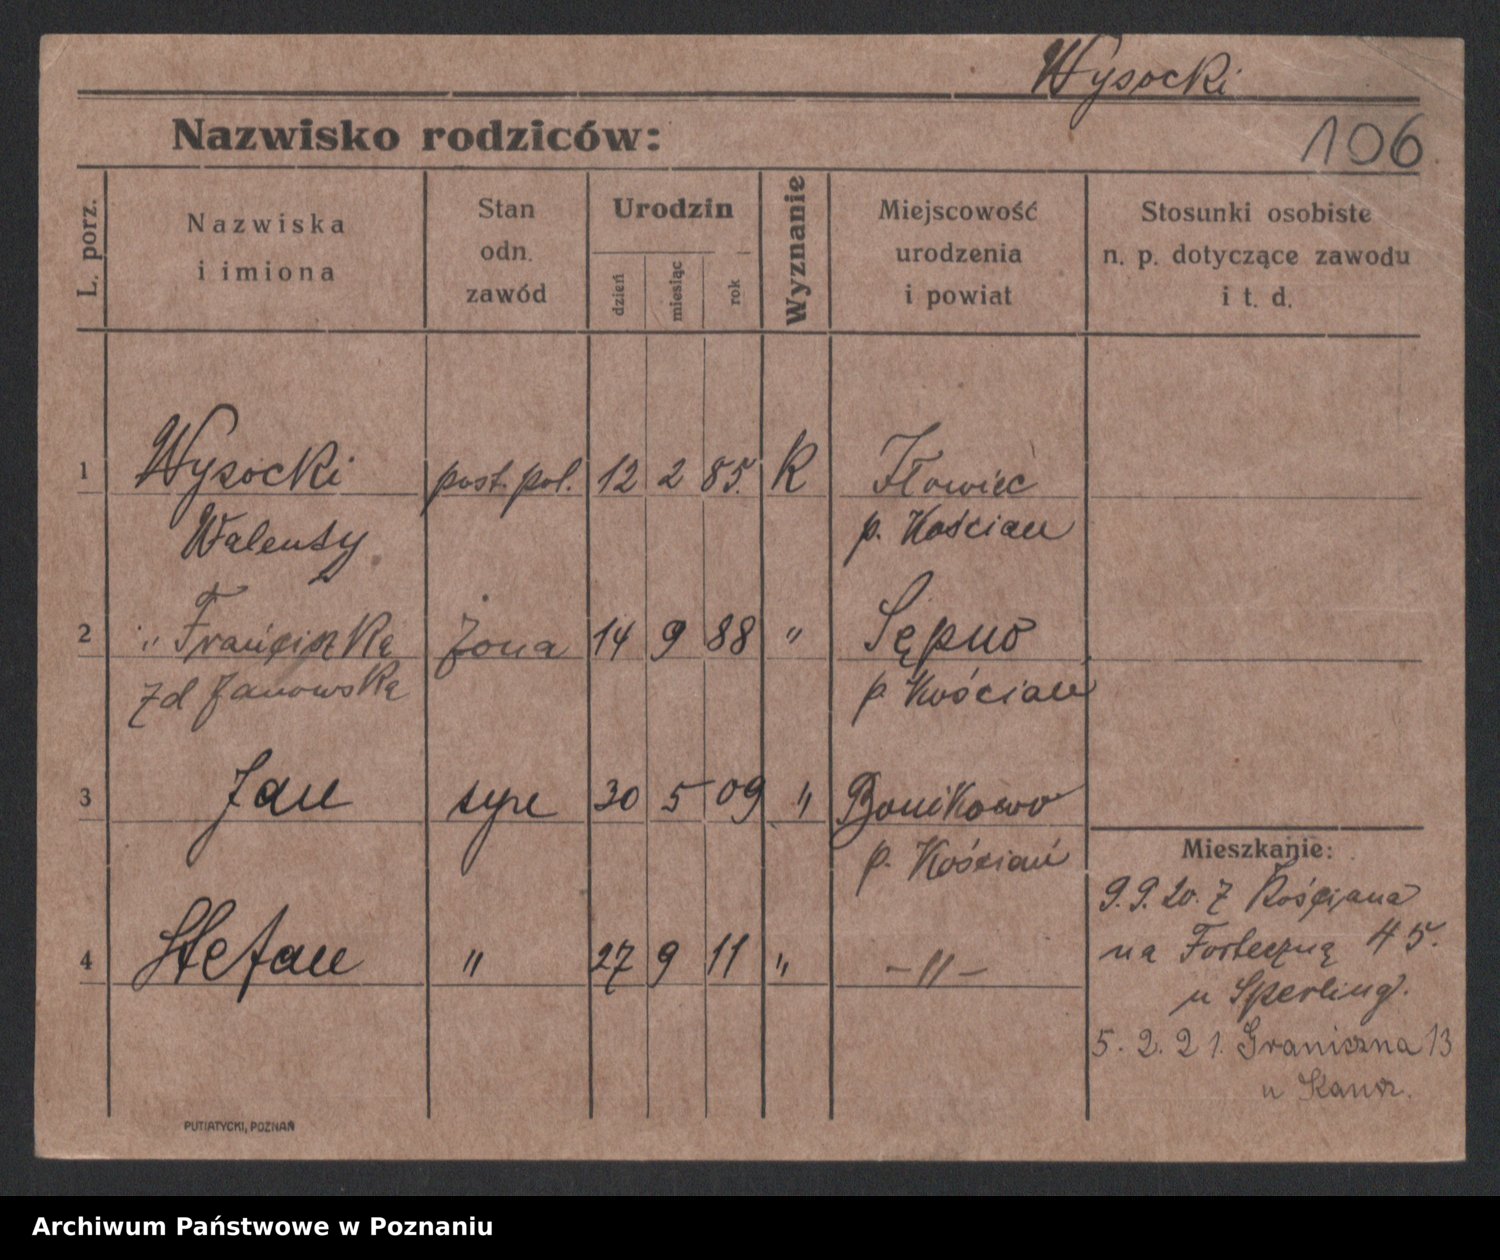 Wysocki
Nazwisko rodziców:
106
L. porz.
Nazwiska
i imiona
Stan
odn.
zawód
Urodzin
dzień
miesiąc
rok
Wyznanie
Miejscowość
urodzenia
i powiat
Stosunki osobiste
n. p. dotyczące zawodu
i t. d.
1 Wysocki post. pol. 12 2 85. K
Walenty p. Kościan
2 " Franciszka żona 14 9 88 " Sępno
zd Janowska p Kościan
3 Jan syn 30 5 09 " Bonikowo
p. Kościań
4 Stefan " 27 9 11 " -"-
Mieszkanie:
9.9.20. z Kościana
na Forteczną 45.
u Sperling.
5.2.21. Graniczna 13
u
PUTIATYCKI, POZNAŃ
Archiwum Państwowe w Poznaniu